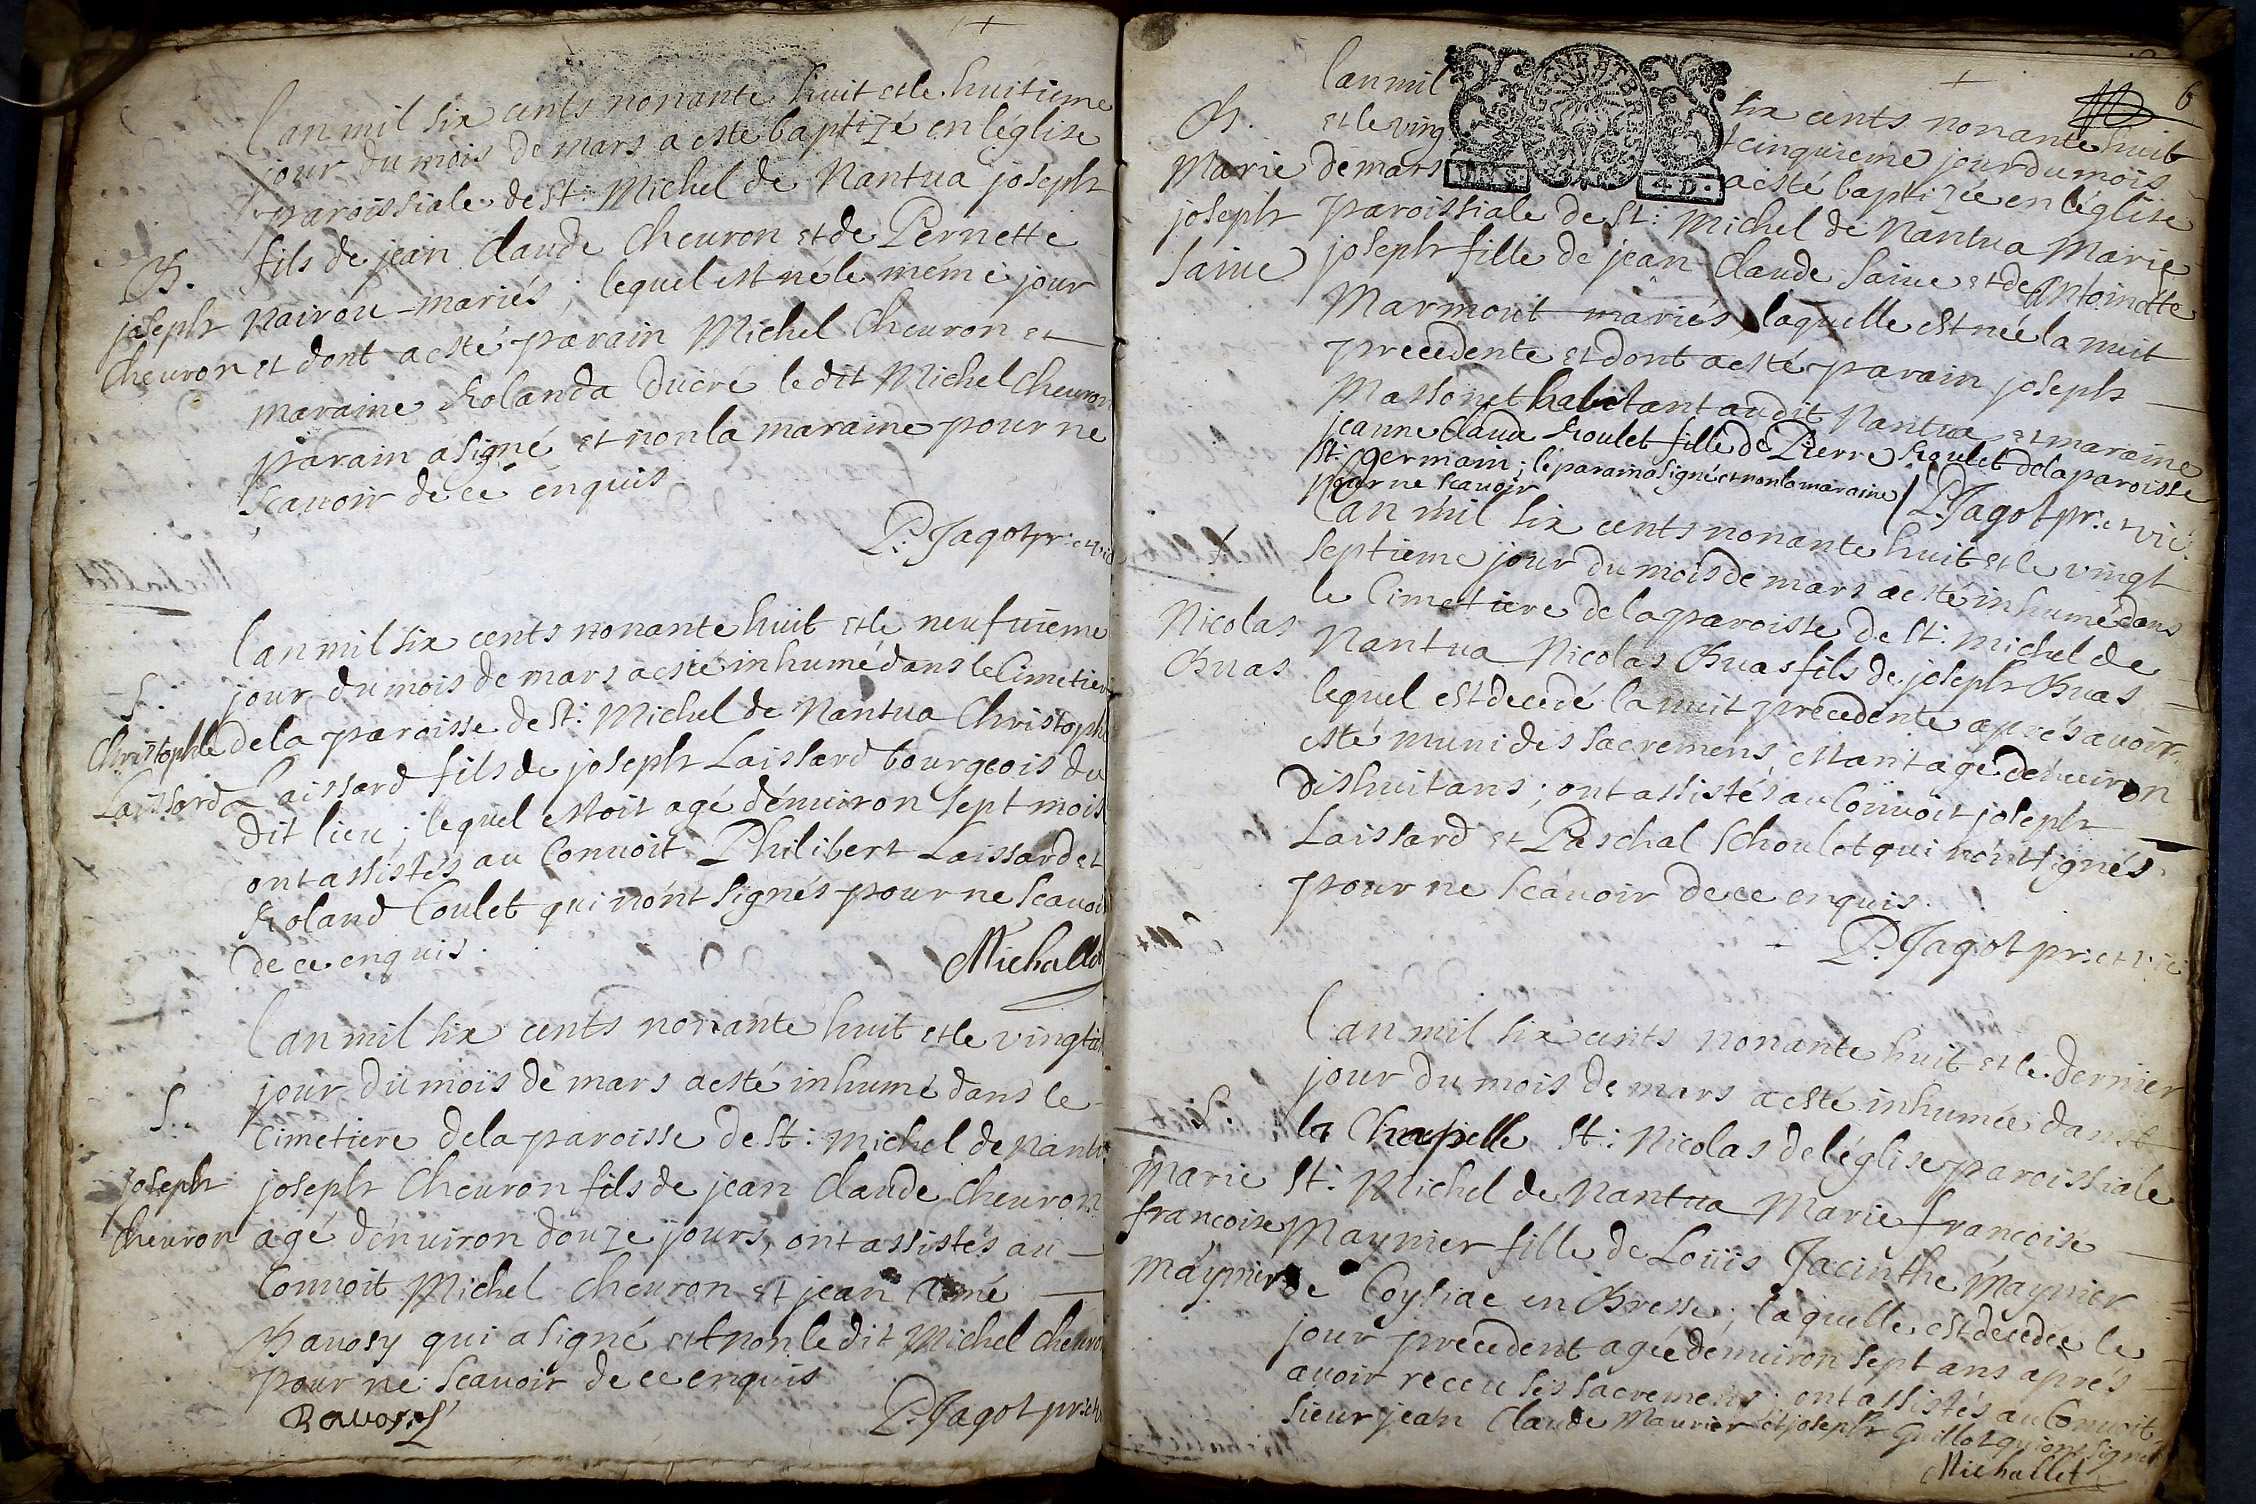 Lan mil six cents nonante huit et le huitieme
jour du mois de mars a esté baptizé en léglise
paroissiale de St: Michel de Nantua joseph
fils de jean Claude Cheuron et de Pernette
B.
joseph
Cheuron
Nairou mariés; lequel est né le méme jour
et dont a esté parain Michel Cheuron et
maraine Rolanda Ducré le dit Michel Cheuron
parain a signé et non la maraine pour ne
scauoir de ce enquis
P. Jagot pr: et vic
Lan mil six cents nonante huit et le neufuieme
S.
Christophle
Laissard
jour du mois de mars a esté inhumé dans le Cimetiere
de la paroisse de St: Michel de Nantua Christophle
Laissard fils de joseph Laissard bourgeois du
dit lieu; lequel estoit agé dénuiron sept mois
ont assistés au Conuoit Philibert Laissard et
Roland Coulet qui nont signés pour ne scauoir
de ce enquis.
Michallet
Lan mil six cents nonante huit et le vingtie
S.
joseph
Cheuron
jour du mois de mars a esté inhumé dans le
Cimetiere de la paroisse de St: Michel de Nantua
joseph Cheuron fils de jean Claude Cheuron
agé dénuiron douze jours, ont assistés au
Conuoit Michel Cheuron et jean Aimé
Bauosy qui a signé et non le dit Michel Cheuron
pour ne scauoir de ce enquis
P. Jagot pr: et v
6
Lan mil six cents nonante huit
B.
Marie
joseph
Saiue
et le vingt cinquieme jour du mois
GENER
UN S.
4 D.
de mars a esté baptizée en léglise
paroissiale de St: Michel de Nantua Marie
joseph fille de jean Claude Saiue et de Antoinette
Marmont mariés, laquelle est née la nuit
precedente et dont a esté parain joseph
Massonet habitant audit Nantua et maraine
jeanne Claude Roulet fille de Pierre Roulet de la paroisse
St. Germain; le parain a signé et non la maraine
pour ne scauoir
P. Jagot pr: et vic
Lan mil six cents nonante huit et le vingt
Nicolas
Buas
septieme jour du mois de mars a esté inhumé dans
le Cimetiere de la paroisse de St: Michel de
Nantua Nicolas Buas fils de joseph Buas
lequel est decedé la nuit precedente aprés auoir
esté muni des sacremens, estant agé dénuiron
dishuit ans; ont assistés au Conuoit joseph
Laissard et Paschal Schoulet qui nont signés
pour ne scauoir de ce enquis.
P. Jagot pr: et vic
Lan mil six cents nonante huit et le dernier
S.
Marie
francoise
Maynier
jour du mois de mars a esté inhumée dans
la Chapelle St: Nicolas de léglise paroissiale
St: Michel de Nantua Marie francoise
Maynier fille de Loüis Jacinthe Maynier
de Coysiac en Bresse; laquelle est decedée le
jour precedent agée dénuiron sept ans aprés
auoir receu les sacremens; ont assistés au Conuoit
sieur jean Claude Maurier et joseph Guillot qui ont signés
Michallet